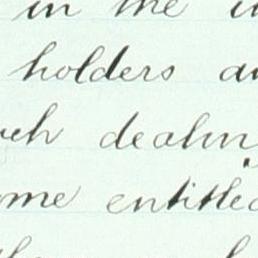 in the
holders
dealin
ome entitled